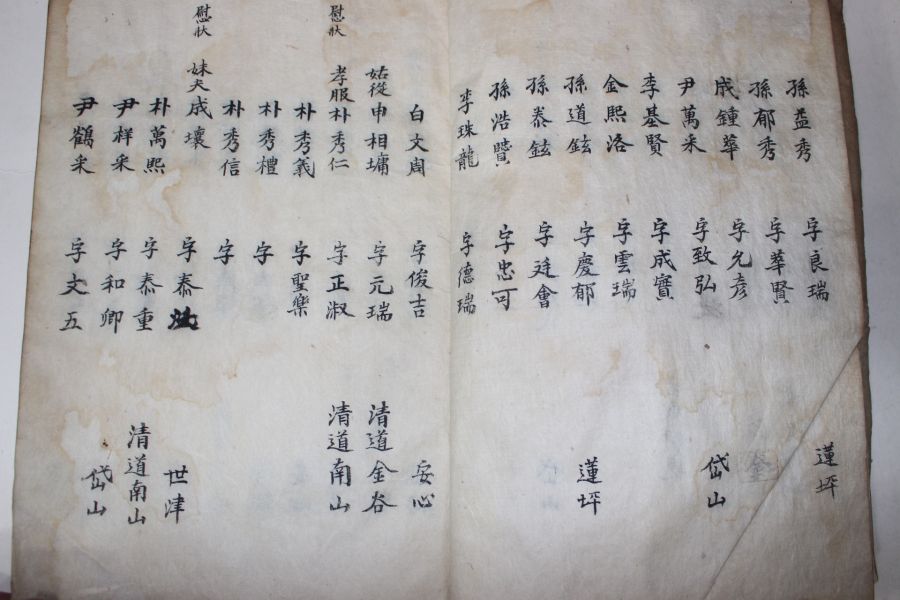 孫益秀 字良瑞 蓮坪
孫郁秀 字華賢
成鍾華 字允彦
尹萬采 字致弘 岱山
李基賢 字成寶
金熙洛 字雲瑞
孫道鉉 字慶郁 蓮坪
孫泰鉉 字廷會
孫浩贊 字忠可
李珠龍 字德瑞
白文周 字俊吉 安心
姑從 申相墉 字元瑞 清道金谷
慰狀 孝服 朴秀仁 字正淑 清道南山
朴秀義 字聖樂
朴秀禮 字
朴秀信 字
慰狀 妹夫 成壞 字泰 世津
朴萬熙 字泰重 清道南山
尹祥采 字和卿 岱山
尹鶴采 字文五